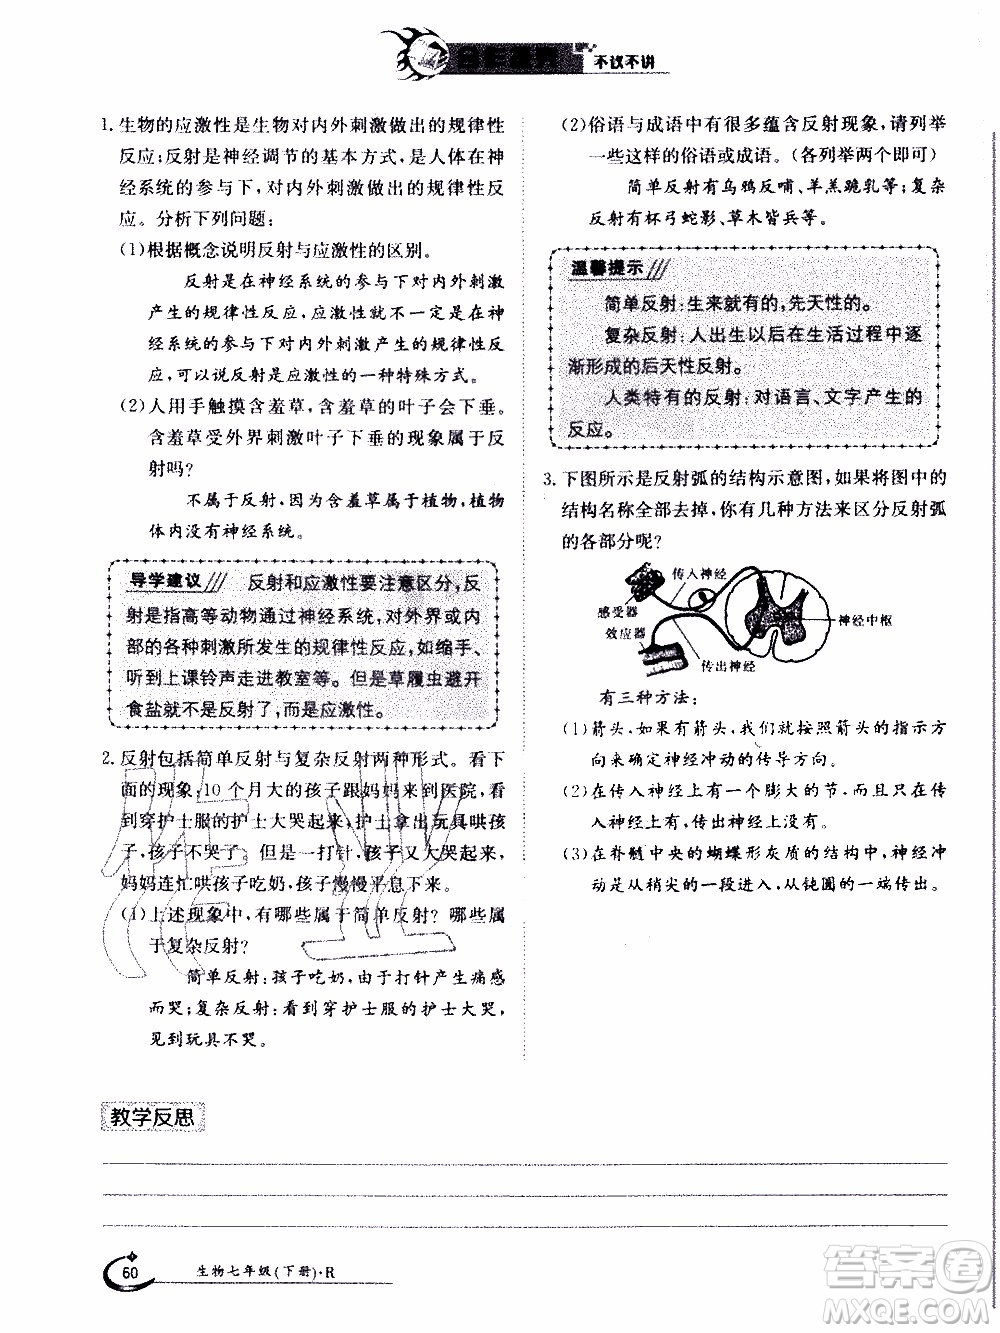 不议不讲
1. 生物的应激性是生物对内外刺激做出的规律性
反应；反射是神经调节的基本方式，是人体在神
经系统的参与下，对内外刺激做出的规律性反
应。分析下列问题：
(1)根据概念说明反射与应激性的区别。
反射是在神经系统的参与下对内外刺激
产生的规律性反应，应激性是生物在没有神
(2)人用手触摸含羞草，含羞草的叶子会下垂。
含羞草受外界刺激叶子下垂的现象属于反
射吗？
不属于反射，因为含羞草属于植物，植物
体内没有神经系统。
导学建议 反射和应激性要注意区分，反
射是指高等动物通过神经系统，对外界或内
部的各种刺激所发生的规律性反应，如缩手、
听到上课铃声走进教室等。但是草履虫避开
食盐就不是反射了，而是应激性。
2. 反射包括简单反射与复杂反射两种形式。看下
面的现象：10个月大的孩子跟妈妈来到医院，
看到穿护士服的护士大哭起来，护士拿出玩具哄孩
子，孩子不哭了，但是一打针，孩子又大哭起来，
妈妈连忙哄孩子吃奶，孩子慢慢平息下来。
(1)上述现象中，有哪些属于简单反射？哪些属
于复杂反射？
简单反射：孩子吃奶，由于打针产生痛感
而哭；复杂反射：看到穿护士服的护士大哭，
见到玩具不哭。
(2)俗语与成语中有很多蕴含反射现象，请列举
一些这样的俗语或成语。(各列举两个即可)
简单反射有乌鸦反哺、羊羔跪乳等；复杂
反射有杯弓蛇影、草木皆兵等。
温馨提示
简单反射：生来就有的，先天性的。
复杂反射：人出生以后在生活过程中逐
渐形成的后天性反射。
人类特有的反射：对语言、文字产生的
反应。
3. 下图所示是反射弧的结构示意图，如果将图中的
结构名称全部去掉，你有几种方法来区分反射弧
的各部分呢？
传入神经
感受器
效应器
神经中枢
传出神经
有三种方法：
(1)箭头，如果有箭头，我们就按照箭头的指示方
向来确定神经冲动的传导方向。
(2)在传入神经上有一个膨大的节，而且只有传
入神经上有，传出神经上没有。
(3)在脊髓中央的蝴蝶形灰质的结构中，神经冲
动是从稍尖的一段进入，从钝圆的一端传出。
教学反思
60
生物七年级(下册)·R
答案圈
MXQE.COM